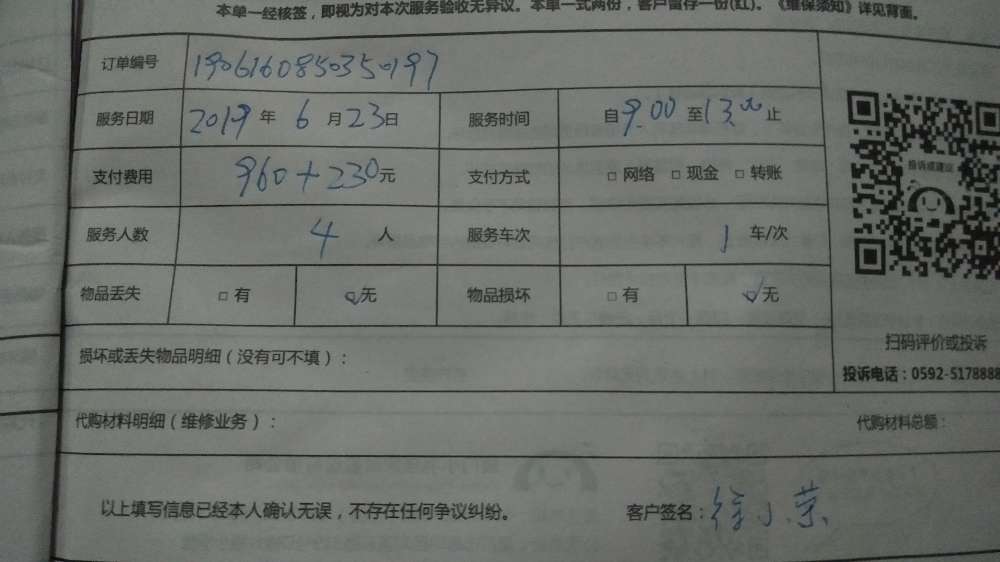 本单一经核签，即视为对本次服务验收无异议。本单一式两份，客户留存一份(红)。《维保须知》详见背面。
订单编号 1906160850350197
服务日期 2019 年 6 月 23 日 服务时间 自 9.00 至 13.00 止
支付费用 960+230 元 支付方式 □ 网络 □ 现金 □ 转账
投诉或建议
服务人数 4 人 服务车次 1 车/次
物品丢失 □ 有 ☑ 无 物品损坏 □ 有 ☑ 无
扫码评价或投诉
损坏或丢失物品明细（没有可不填）：
投诉电话：0592-5178888
代购材料明细（维修业务）： 代购材料总额：
以上填写信息已经本人确认无误，不存在任何争议纠纷。 客户签名：徐小荣